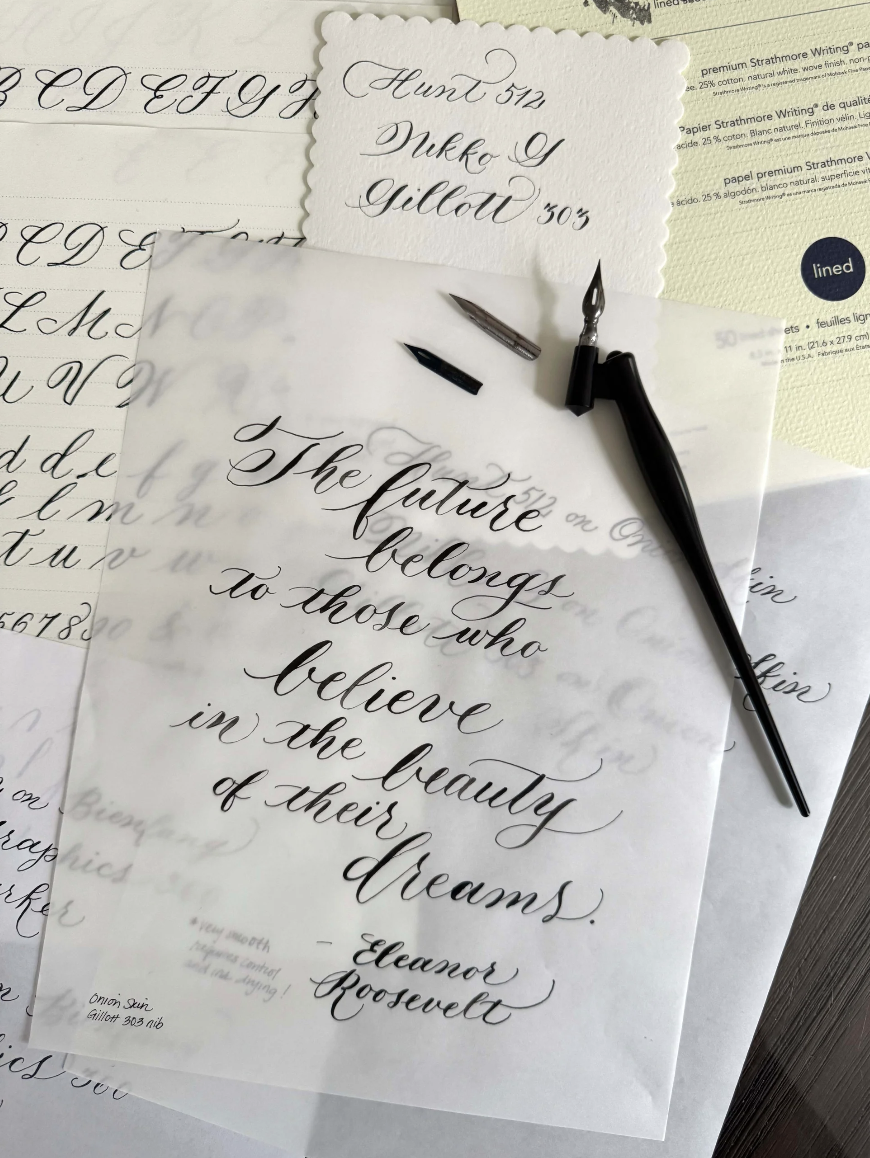 B C D E F G H
Hunt 512
Nikko G
Gillott 303
lined
premium Strathmore Writing® pa
25% cotton. natural white. wove finish. non-p
Papier Strathmore Writing® de qualité
acide. 25 % coton. Blanc naturel. Finition vélin. Lig
papel premium Strathmore
ácido. 25 % algodón. blanco natural. superficie vit
lined
50 lined sheets • feuilles lign
11 in. (21.6 x 27.9 cm)
in the U.S.A. Fabriqué aux États
C D E F G H
L M N
U V W
d d e f g
k l m n
t u v w
5 6 7 8 9 0 &
The future
belongs
to those who
believe
in the beauty
of their
dreams.
– Eleanor
Roosevelt
Onion Skin
Gillott 303 nib
Hunt 512 on Onion Skin
on Onion Skin
303 on Onion Skin
on Bienfang
Graphics 360
Marker
* very smooth
requires control
and use drying!